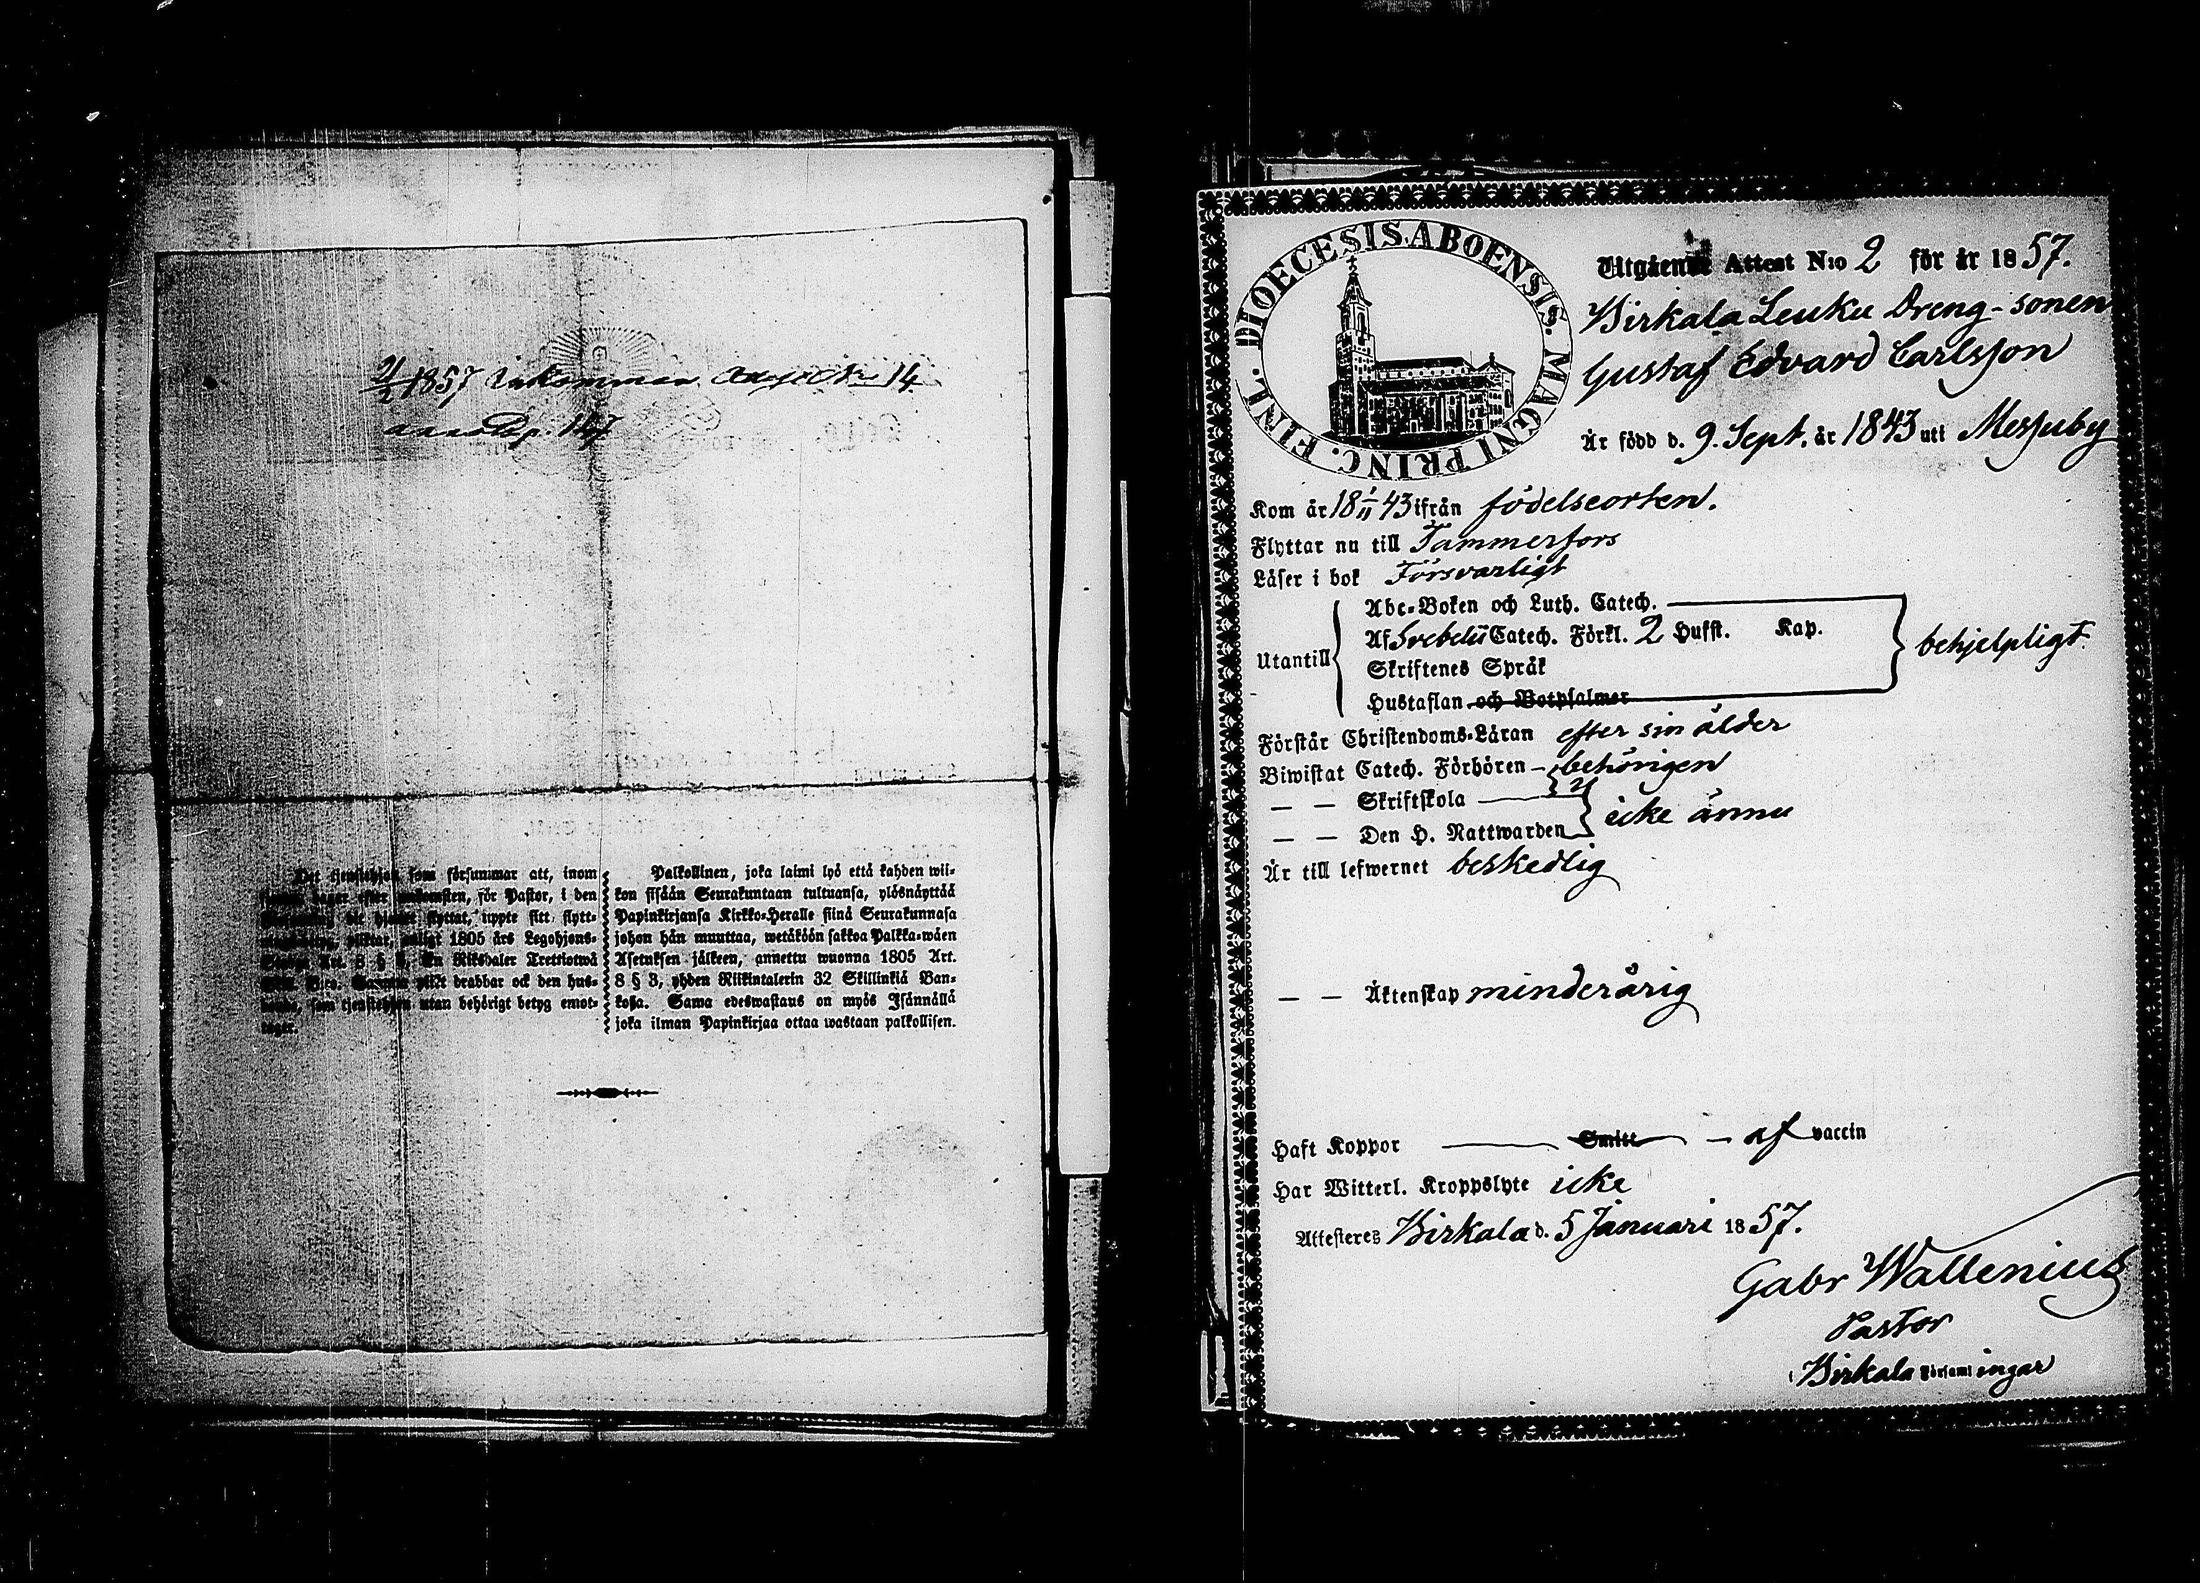 1857 Inkommen Attest N:o 14
p. 147
Det tjenstehjon som försummar att, inom
dagar efter ankomsten, för Pastor, i den
dit hjonet flyttat, uppte sitt flytt-
pliktar, enligt 1805 års Legohjons-
Art. 8 § 3, En Riksdaler Trettiotwå
Sk. B:co. Samma plikt drabbar ock den hus-
bonde, som tjenstehjon utan behörigt betyg emot-
tager.
Palkollinen, joka laimi lyö että kahden wii-
kon sisään Seurakuntaan tultuansa, ylösnäyttää
Papinkirjansa Kirkko-Heralle siinä Seurakunnasa
johon hän muuttaa, wetäköön sakkoa Palkka-wäen
Asetuksen jälkeen, annettu wuonna 1805 Art.
8 § 3, yhden Riikintalerin 32 Skillinkiä Ban-
kosa. Sama edeswastaus on myös Isännällä
joka ilman Papinkirjaa ottaa wastaan palkollisen.
DIOECESIS ABOENSIS. MAGNI PRINC. FINL.
Utgående Attest N:o 2 för år 1857.
Birkala Leuku Dreng-sonen
Gustaf Edvard Carlsson
Är född d. 9. Sept. år 1843 uti Messuby
Kom år 18 1/11 43 ifrån födelseorten.
Flyttar nu till Tammerfors
Läser i bok Försvarligt
Utantill
Abc-Boken och Luth. Catech.
Af Svebelii Catech. Förkl. 2 Hufst. Kap.
Skriftenes Språk
Hustaflan och Botpsalmer
behjelpligt.
Förstår Christendoms-Läran efter sin ålder
Biwistat Catech. Förhören - behörigen
— — Skriftskola
— — Den H. Nattwarden
icke ännu
Är till lefwernet beskedlig
— — Äktenskap minderårig
Haft Koppor Smitt - af vaccin
Har Witterl. Kroppslyte icke
Attesteres Birkala d. 5 Januari 1857.
Gabr Wallenius
Pastor
i Birkala Församlingar